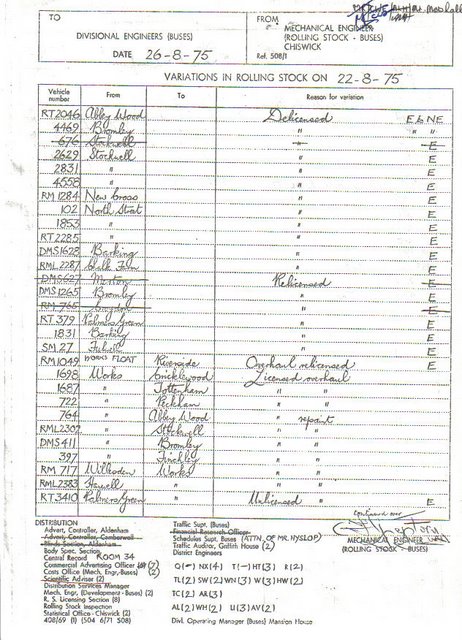 TO
FROM
DIVISIONAL ENGINEERS (BUSES)
MECHANICAL ENGINEER
(ROLLING STOCK - BUSES)
CHISWICK
DATE 26-8-75
Ref. 508/1
VARIATIONS IN ROLLING STOCK ON 22-8-75
Vehicle number From To Reason for variation
RT2046 Abbey Wood Delicensed E & NE
4469 Bromley " " "
676 Stockwell " E
2629 Stockwell " E
2831 " " E
4558 " " E
RM 1284 New Cross " E
102 North Street " E
1853 " " E
RT2285 " " E
DMS1628 Barking " E
RML2287 Chalk Farm " E
DMS627 Merton Relicensed E
DMS1265 Bromley " E
RM 765 Croydon " E
RT379 Palmers Green " E
1831 Barking " E
SM 27 Feltham " E
RM1049 WORKS FLOAT Riverside Overhaul relicensed E
1698 Works Cricklewood Licensed overhaul
1687 " Tottenham " "
722 " Peckham " "
764 " Abbey Wood " repaint
RML2302 " Stockwell " "
DMS411 " Bromley " "
397 " Finchley " "
RM 717 Willesden Works " "
RML2383 Hanwell " " "
RT3410 Palmers Green " Unlicensed " E
continued over
MECHANICAL ENGINEER
(ROLLING STOCK - BUSES)
DISTRIBUTION
Advert, Controller, Aldenham
Advert, Controller, Camberwell
Works Section, Aldenham
Body Spec. Section
Central Record ROOM 34
Commercial Advertising Officer (7)
Costs Office (Mech. Engr.-Buses) (2)
Scientific Adviser (2)
Distribution Services Manager
Mech. Engr. (Development-Buses) (2)
R. S. Licensing Section (8)
Rolling Stock Inspection
Statistical Office - Chiswick (2)
408/69 (1) (504 6/71 508)
Traffic Supt. (Buses)
Financial Research Officer
Schedules Supt. Buses (ATTN. OF MR. HYSLOP)
Traffic Auditor, Griffith House (2)
District Engineers
Q(-) NX(4) T(-) HT(3) R(2)
TL(2) SW(2) WN(3) W(3) HW(2)
TC(2) AR(3)
AL(2) WH(2) U(3) AV(2)
Divl. Operating Manager (Buses) Mansion House